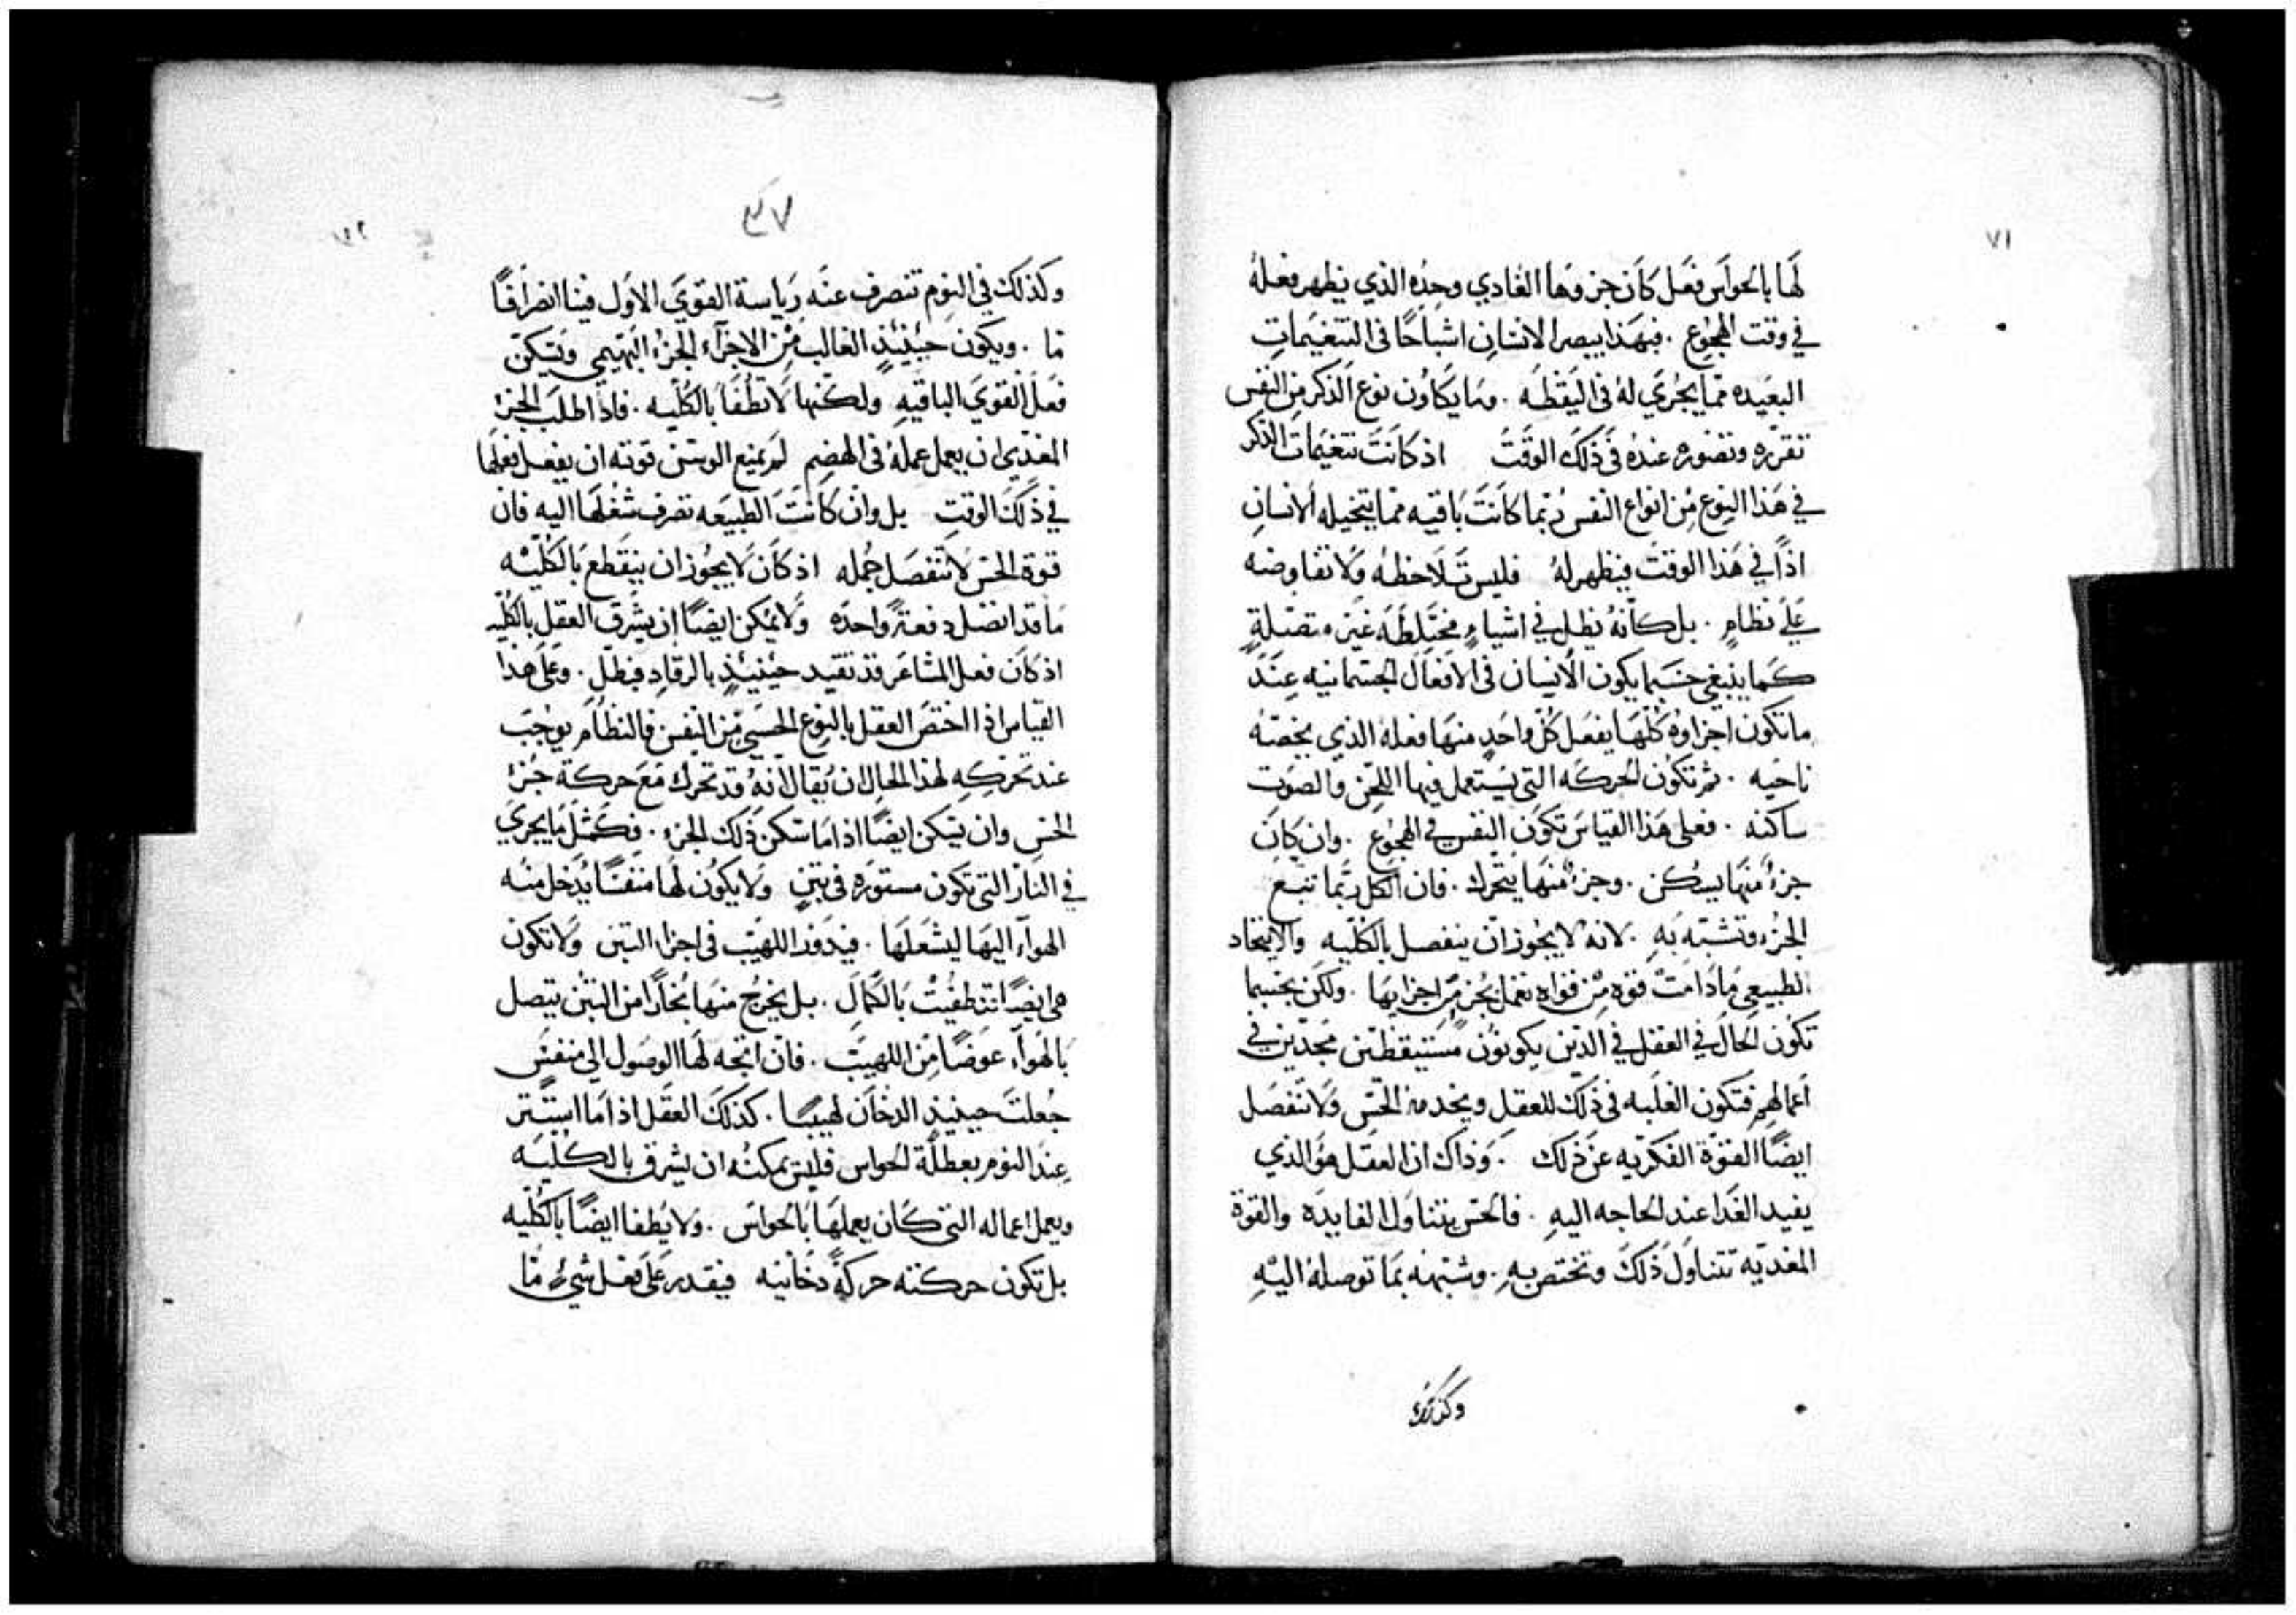 ٧١
لَها بالحواس فعل كان جزوها الغادي وحده الذي يظهر فعله
في وقت الهجوع . فبهذا يبصر الانسان اشباحًا في التنغيمات
البعيده مما يجري له في اليقظه . وما يكاون نوع الذكر من النفس
تقرره وتصوره عنده في ذلك الوقت اذ كانت تنغيمات الذكر
في هذا النوع من انواع النفس ربما كانت باقيه مما يتخيله الانسان
اذًا في هذا الوقت فيظهر له فليس تلاحظه ولا تفاوضه
على نظامٍ . بل كانه يظل في اشياءٍ مختلطه غير متصلةٍ
كما ينبغي حسبما يكون الانسان في الافعال الجسمانيه عند
ما تكون اجزاوه كلها يفعل كل واحدٍ منها فعله الذي يخصه
ناحيه . ثم تكون الحركه التي يستعمل فيها اللحن والصوت
ساكنه . فعلى هذا القياس تكون النفس في الهجوع . وان كان
جزءٌ منها يسكن . وجزءٌ منها يتحرك . فان الكل ربما تتبع
الجزء وتشبه به . لانه لا يجوز ان ينفصل بالكليه والاتحاد
الطبيعي ما دامت قوه من قواه تعمل بجزء من اجزايها . ولكن بحسبما
تكون الحال في العقل في الذين يكونون مستيقظين مجدّين في
اعمالهم فتكون الغلبه في ذلك للعقل ويخدمه الحس ولا تنفصل
ايضًا القوة الفكريه عن ذلك . وذاك ان العقل هو الذي
يفيد الغدا عند الحاجه اليه . فالحس يتناول الفايده والقوة
المغديه تتناول ذلك وتختص به . وشبهه بما توصله اليه
وكذلك
٤٧
٧٢
وكذلك في النوم تنصرف عنه رياسة القوي الاول فينا انصرافًا
ما . ويكون حينئذٍ الغالب من الاجزآء الجزء البهيمي ويسكن
فعل القوي الباقيه ولكنها لا تطفا بالكليه . فاذا طلب الجزء
المغدي ان يعمل عمله في الهضم لم يمنع الوسن قوته ان يفعل فعلها
في ذلك الوقت بل وان كانت الطبيعه تصرف شغلها اليه فان
قوة الحس لا تنفصل جمله اذ كان لا يجوز ان ينقطع بالكليه
ما قد انفصل دفعةً واحده ولا يمكن ايضًا ان يشرق العقل بالكليه
اذ كان فعل المشاعر قد تقيد حينئذٍ بالرقاد فبطل . وعلى هذا
القياس اذا اختص العقل بالنوع الحسي من النفس فالنظام يوجب
عند تحركه لهذا الحال ان يقال انه قد تحرك مع حركة جزء
الحس وان يسكن ايضًا اذا ما سكن ذلك الجزء . فكمثل ما يجري
في النار التي تكون مستوره في تبنٍ ولا يكون لها منفسًا يدخل منه
الهوآء اليها ليشعلها . فيدفد اللهيب في اجزا التبن ولا تكون
هي ايضًا تنطفيت بالكمال . بل يخرج منها بخارًا من التبن يتصل
بالهوآء عوضًا من اللهيب . فان اتجه لها الوصول الي منفس
جعلت حينيذٍ الدخان لهيبًا . كذلك العقل اذا ما استتر
عند النوم بعطلة الحواس فليس يمكنه ان يشرق بالكليه
ويعمل اعماله التي كان يعملها بالحواس . ولا يطفا ايضًا بالكليه
بل تكون حركته حركةً دخانيه فيقدر على فعل شيءٍ ما